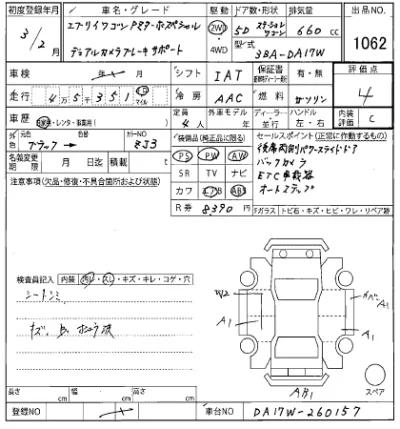 初度登録年月 車名・グレード 駆動 ドア数・形状 排気量 出品NO.
エブリイワゴン PZターボスペシャル 2WD 5D ステーションワゴン 660 cc
3/2月 デュアルカメラブレーキサポート 4WD 型式 3BA-DA17W 1062
車検 年 月 シフト IAT 保証書 有・無 評価点
走行 4万5千351 km マイル 冷房 AAC 燃料 ガソリン 4
車歴 自家用・レンタ・事業用 定員 4人 外車モデル 年 ディーラー 並行 ハンドル 左・右 内装評価 C
色 元色 ブラック→ 色替 カラーNO ZJ3 装備品(純正品に限る) セールスポイント(正常に作動するもの)
名義変更期限 月 日迄 積載 t PS PW AW 後席両側パワースライドドア
注意事項(欠品・修復・不具合箇所および状態) SR TV ナビ バックカメラ
カワ エアB ABS ETC車載器
R券 8390円 オートステップ
Fガラス トビ石・キズ・ヒビ・ワレ・リペア跡
検査員記入 内装 汚レ・スレ・キズ・キレ・コゲ・穴
シートシミ
W2 A1 A1 A1
スペア
AB1
長さ cm 幅 cm 高さ cm
登録NO 車台NO DA17W-260157